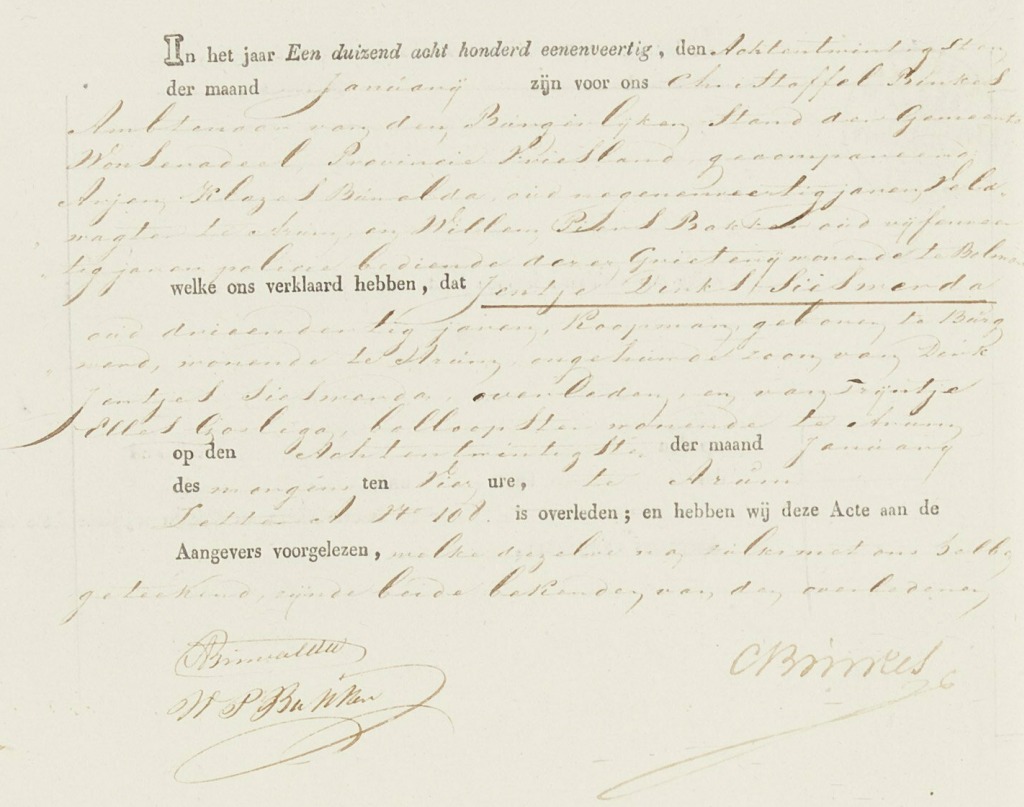 In het jaar Een duizend acht honderd eenenveertig, den Achtentwintigsten
der maand Januarij zijn voor ons Christoffel Brinkes
Ambtenaar van den Burgerlijken Stand der Gemeente
Wonseradeel, Provincie Vriesland, gecompareerd
Arjen Klazes Binnalda, oud negenenveertig jaren, Veld-
wagter te Arum, en Willem Piers Bakker oud vijfenveer
tig jaren policie bediende dezer Grietenij wonende te Bolsward
welke ons verklaard hebben, dat Jentje Dirks Sielsmerda
oud drieendertig jaren, Koopman, geboren te Burg
werd, wonende te Arum, ongehuwde zoon van Dirk
Jentjes Sielsmerda, overleden, en van Trijntje
Elles Gosliga, wonende te Arum,
op den Achtentwintigste der maand Januarij
des morgens ten Vier ure, te Arum
Letter A No 108. is overleden; en hebben wij deze Acte aan de
Aangevers voorgelezen, welke dezelve nog met ons hebben
geteekend, zijnde beide bekenden van den overledenen
ABinnalda
W P Bakker
CBrinkes